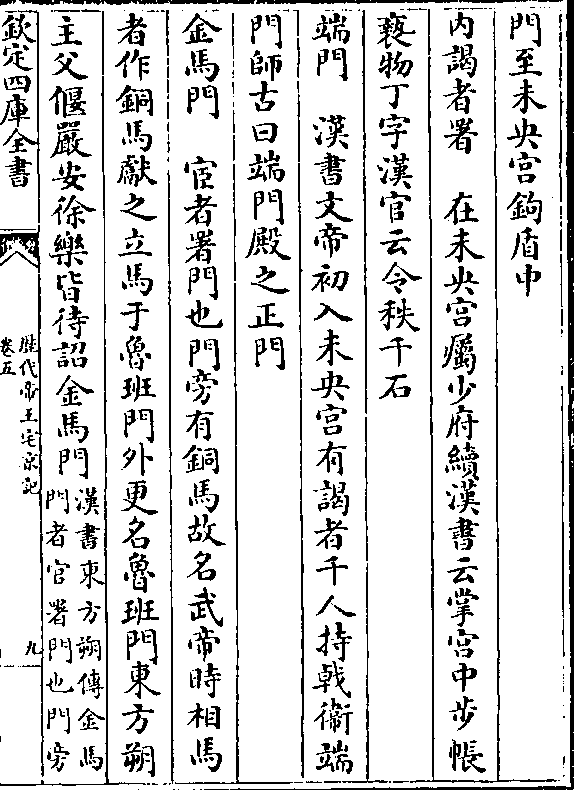 門至未央宫鉤盾中
内謁者署　在未央宫屬少府續漢書云掌宫中步帳
褻物丁字漢官云令秩千石
端門　漢書文帝初入未央宫有謁者千人持戟衛端
門師古曰端門殿之正門
金馬門　宦者署門也門旁有銅馬故名武帝時相馬
者作銅馬獻之立馬于魯班門外更名魯班門東方朔
主父偃嚴安徐樂皆待詔金馬門
漢書東方朔傳金馬
門者官署門也門旁
欽定四庫全書
歷代帝王宅京記
卷五
九